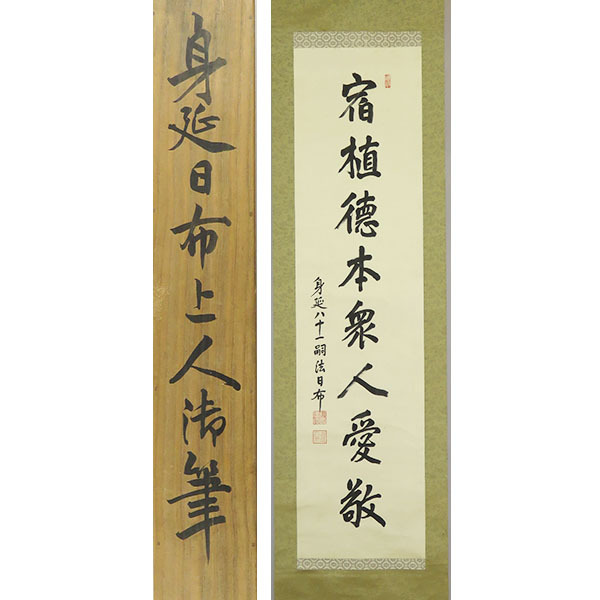 身延日布上人御筆
宿植德本衆人愛敬
身延八十一嗣法日布